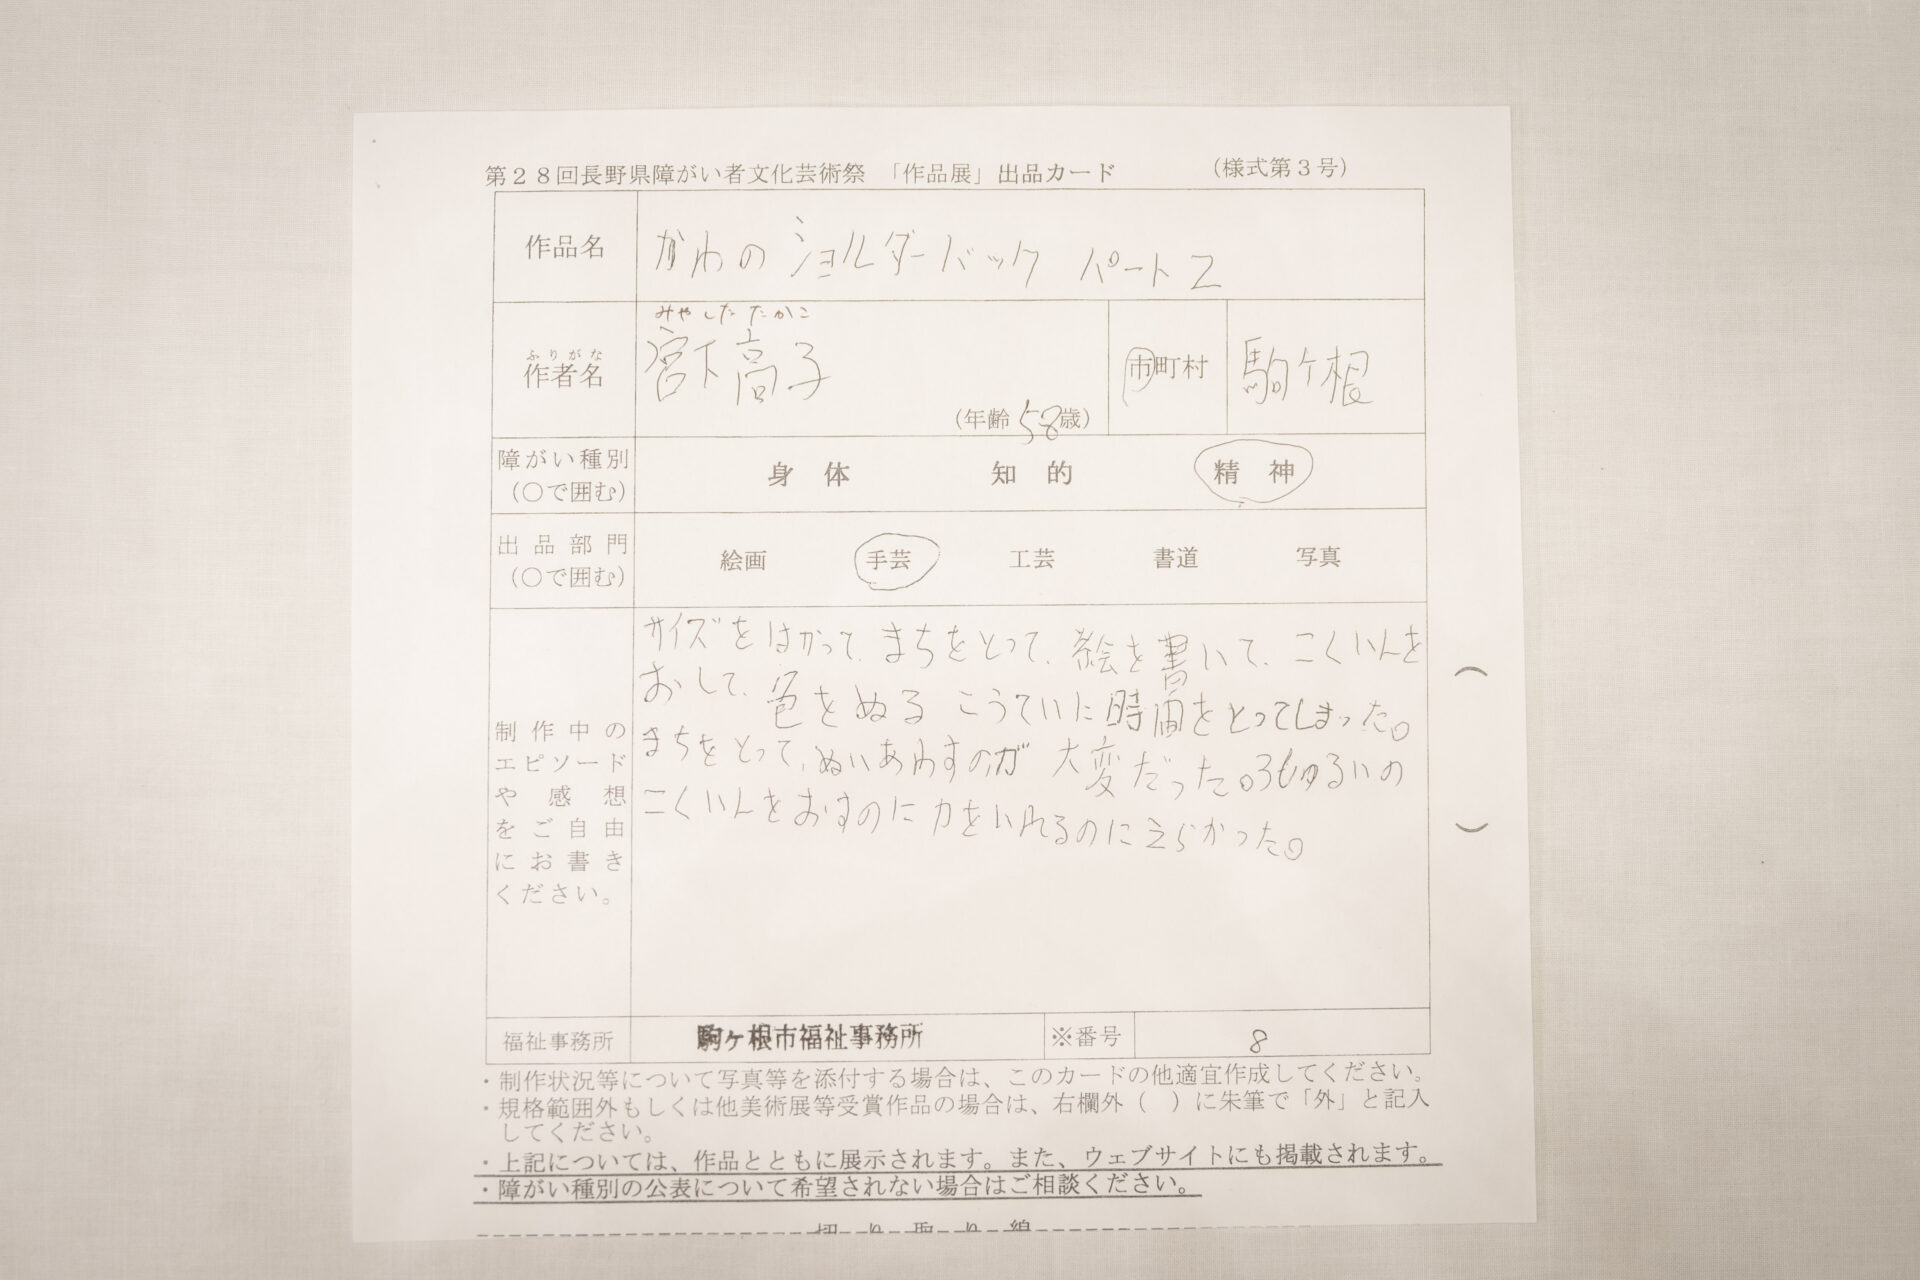 第28回長野県障がい者文化芸術祭 「作品展」出品カード (様式第3号)
作品名 かわの ショルダーバック パート2
みやした たかこ
ふりがな
作者名 宮下高子 (年齢58歳) 市町村 駒ケ根
障がい種別 身体 知的 精神
(○で囲む)
出品部門 絵画 手芸 工芸 書道 写真
(○で囲む)
制作中の
エピソード
や感想
をご自由
にお書き
ください。
サイズをはかって、まちをとって、絵を書いて、こくいんを
おして、色をぬる こうていに時間をとってしまった。
まちをとって、ぬいあわすのが 大変だった。36しゅるいの
こくいんをおすのに力をいれるのにえらかった。
( )
福祉事務所 駒ケ根市福祉事務所 ※番号 8
・制作状況等について写真等を添付する場合は、このカードの他適宜作成してください。
・規格範囲外もしくは他美術展等受賞作品の場合は、右欄外( )に朱筆で「外」と記入
してください。
・上記については、作品とともに展示されます。また、ウェブサイトにも掲載されます。
・障がい種別の公表について希望されない場合はご相談ください。
切り取り線